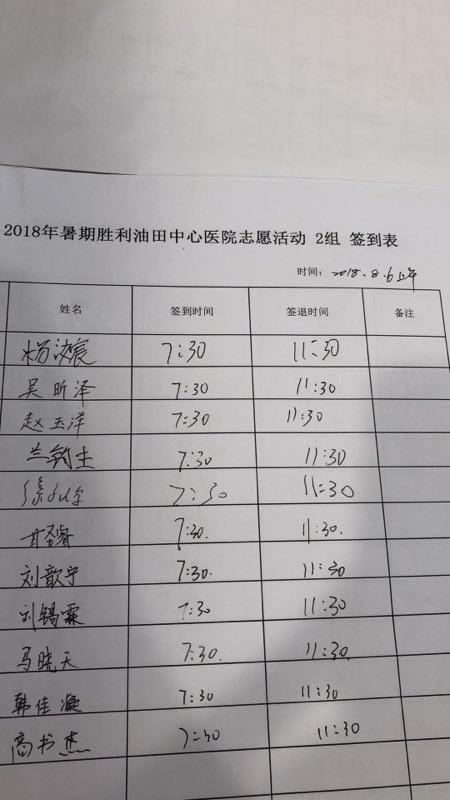 2018年暑期胜利油田中心医院志愿活动 2组 签到表
时间：2018.8.6上午
姓名 签到时间 签退时间 备注
7:30 11:30
吴昕泽 7:30 11:30
赵玉洋 7:30 11:30
兰钧圭 7:30 11:30
7:30 11:30
甘圣睿 7:30. 11:30.
刘歆宁 7:30. 11:30
刘锡霖 7:30 11:30
马晓天 7:30. 11:30.
韩佳凝 7:30 11:30
高书杰 7:30 11:30